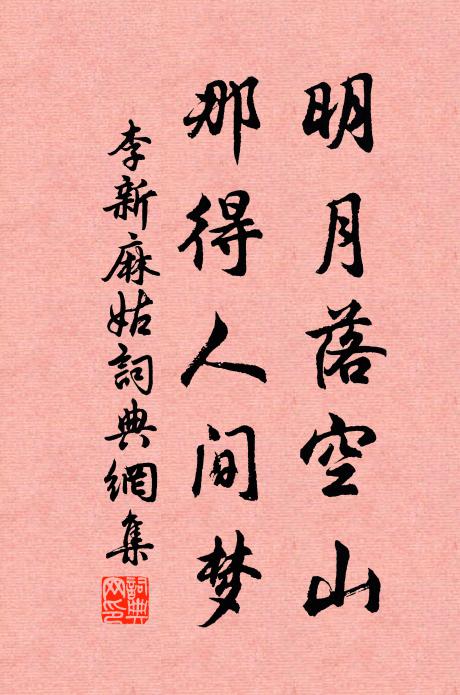 明月落空山
那得人间梦
李新麻姑詞典網集
詞典
网印